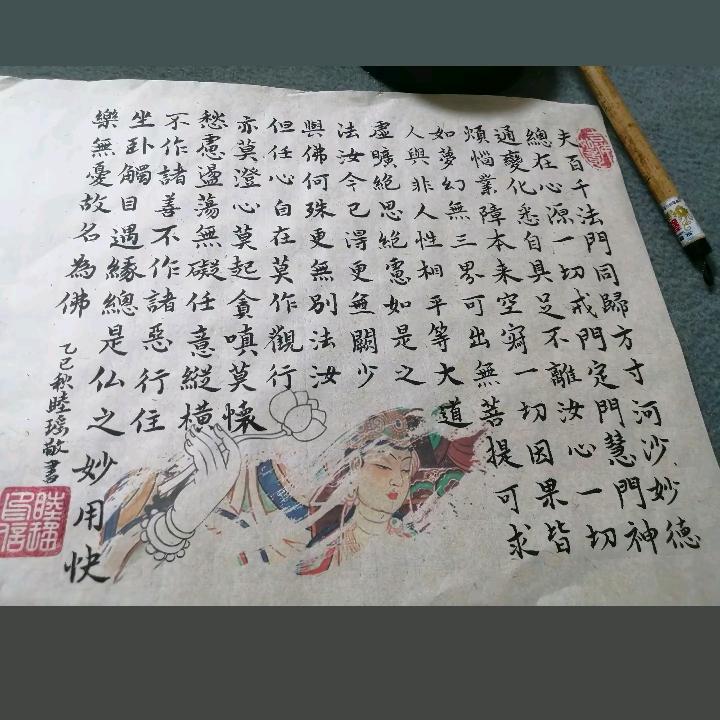 夫百千法門同歸方寸河沙妙德
總在心源一切戒門定門慧門神
通變化悉自具足不離汝心一切
煩惱業障本来空寂一切因果皆
如夢幻無三界可出無菩提可求
人與非人性相平等大道
虛曠絕思絕慮如是之
法汝今已得更無闕少
與佛何殊更無別法汝
但任心自在莫作觀行
亦莫澄心莫起貪嗔莫懷
愁慮盪蕩無礙任意縱橫
不作諸善不作諸惡行住
坐卧觸目遇緣總是仏之妙用快
樂無憂故名為佛
乙巳秋睦瑤敬書
睦瑤
印信